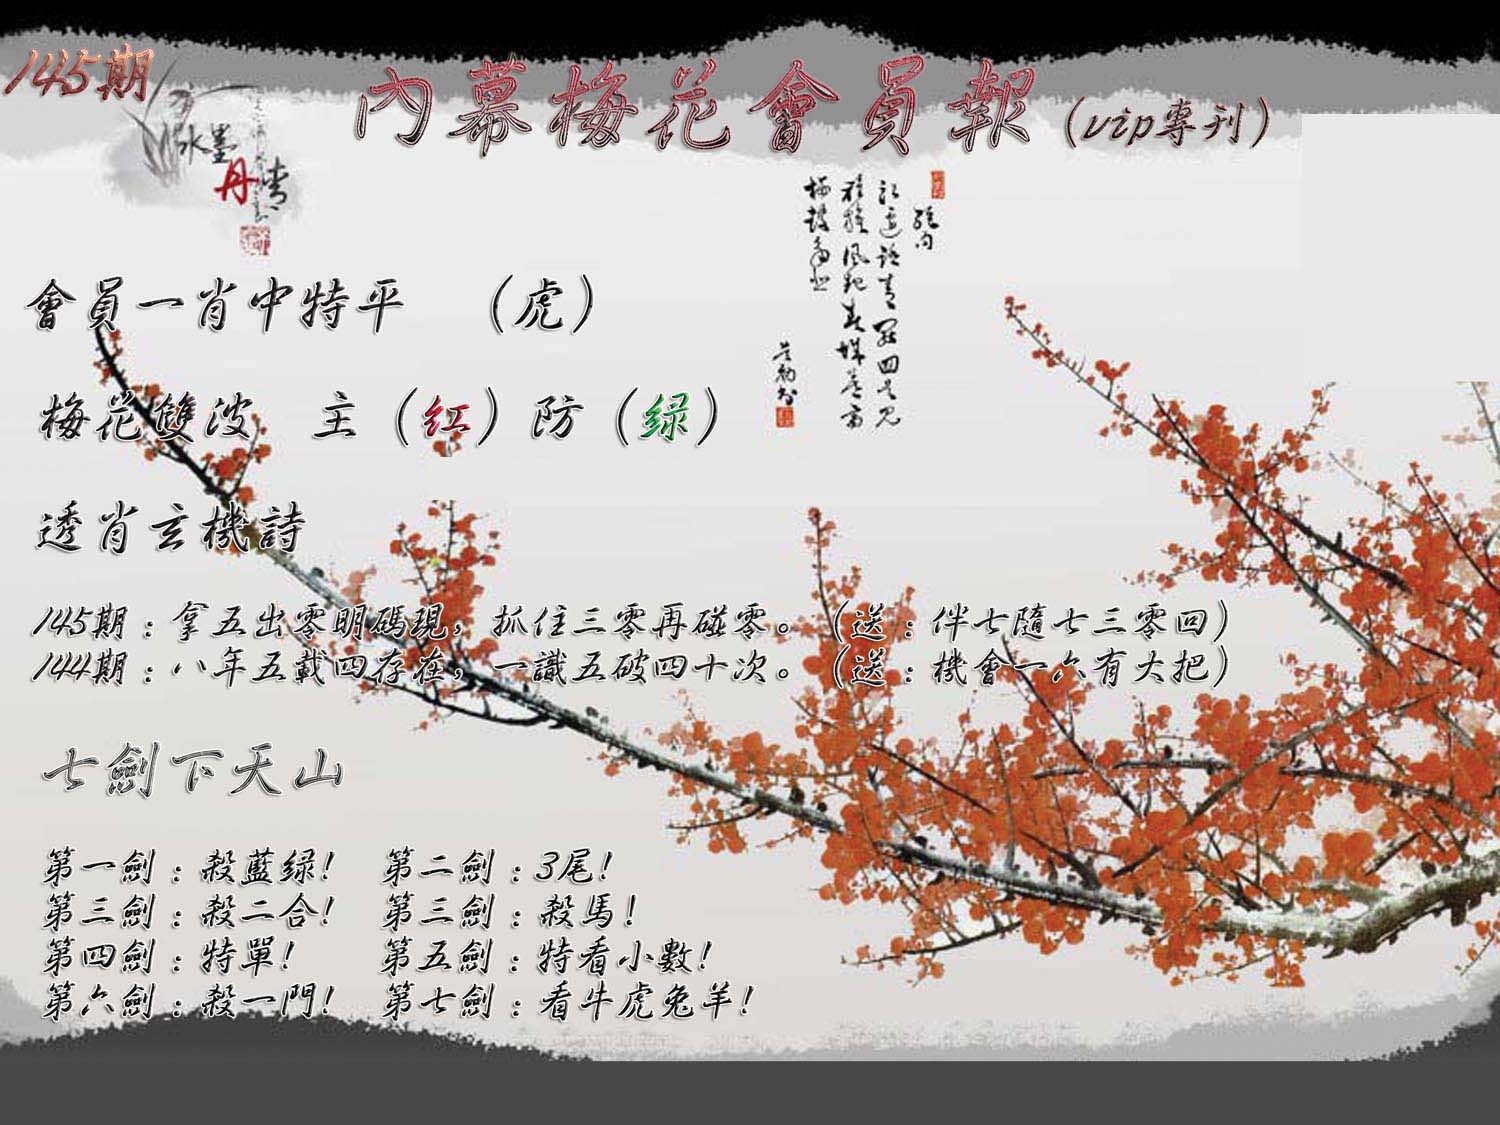 145期
內幕梅花會員報（vip專刊）
水墨
丹青
會員一肖中特平　（虎）
梅花雙波　主（紅）防（绿）
透肖玄機詩
145期：拿五出零明碼現，抓住三零再碰零。（送：伴七隨七三零回）
144期：八年五載四存在，一識五破四十次。（送：機會一六有大把）
七劍下天山
第一劍：殺藍绿!　第二劍：3尾!
第三劍：殺二合!　第三劍：殺馬!
第四劍：特單!　第五劍：特看小數!
第六劍：殺一門!　第七劍：看牛虎兔羊!